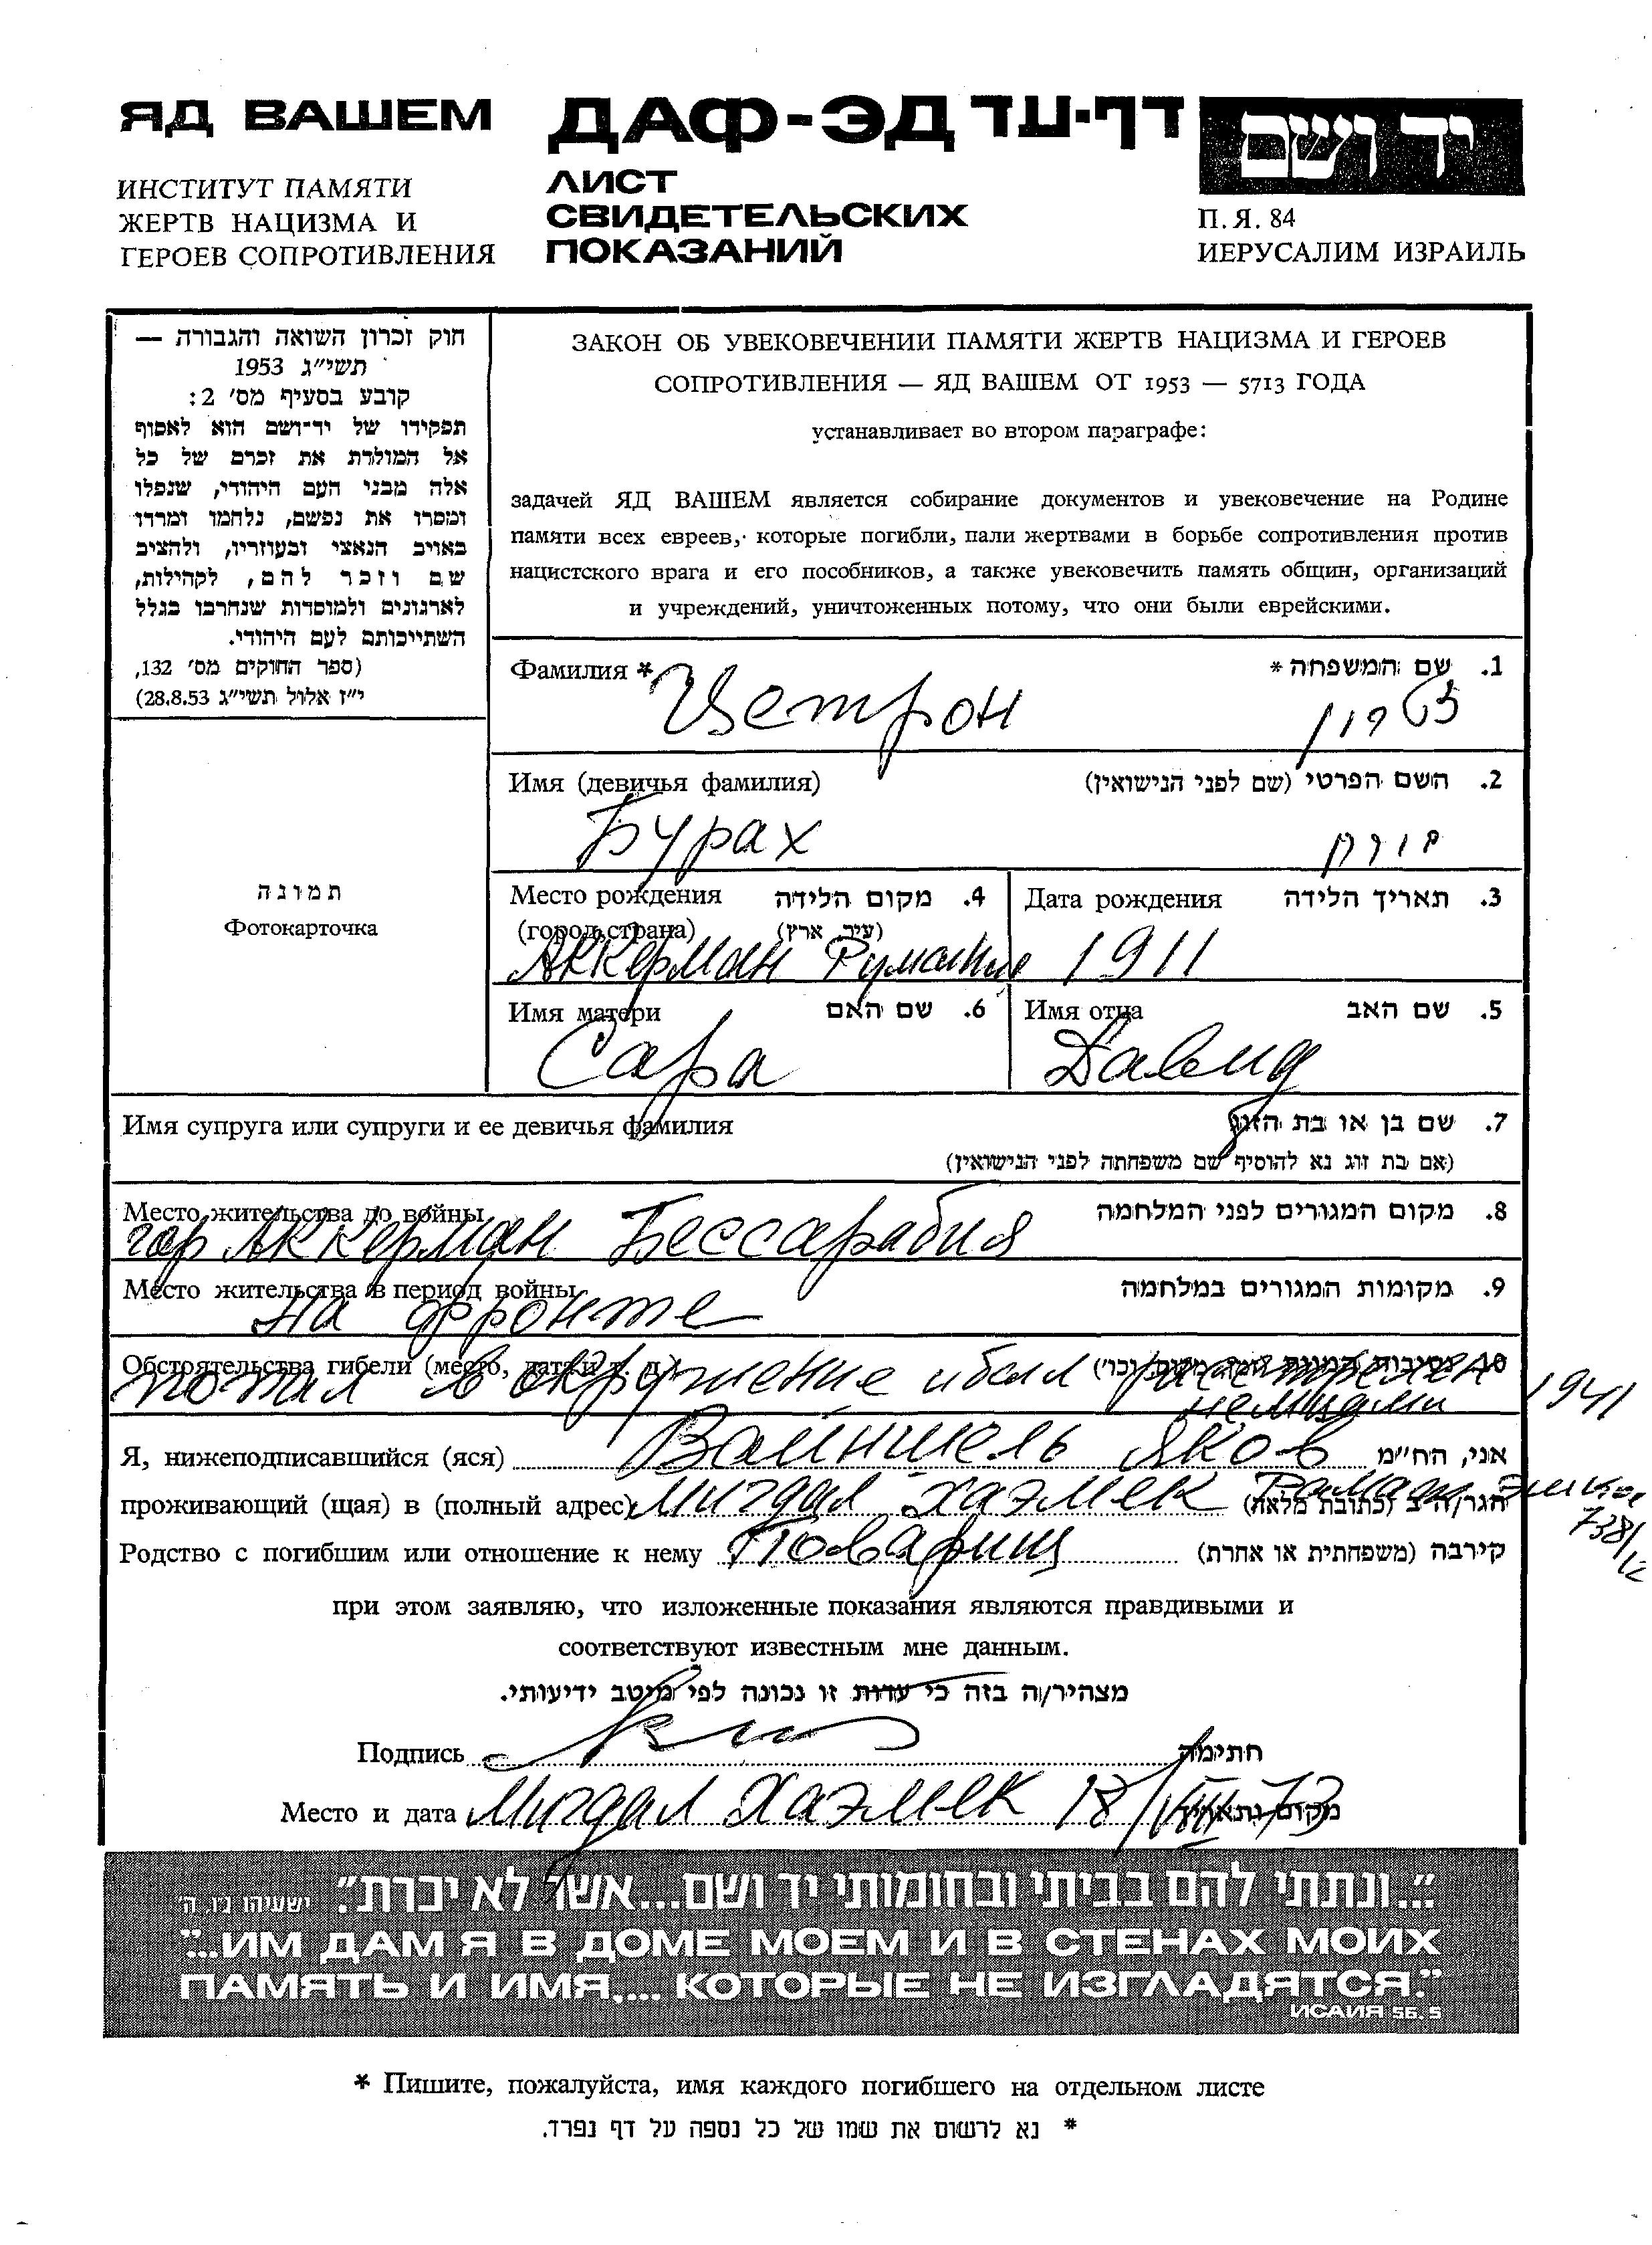 ЯД ВАШЕМ
ИНСТИТУТ ПАМЯТИ
ЖЕРТВ НАЦИЗМА И
ГЕРОЕВ СОПРОТИВЛЕНИЯ
ДАФ-ЭД דף-עד
ЛИСТ
СВИДЕТЕЛЬСКИХ
ПОКАЗАНИЙ
יד ושם
П. Я. 84
ИЕРУСАЛИМ ИЗРАИЛЬ
חוק זכרון השואה והגבורה —
תשי״ג 1953
קובע בסעיף מס׳ 2:
תפקידו של יד־ושם הוא לאסוף
אל המולדת את זכרם של כל
אלה מבני העם היהודי, שנפלו
ומסרו את נפשם, נלחמו ומרדו
באויב הנאצי ובעוזריו, ולהציב
שם וזכר להם, לקהילות,
לארגונים ולמוסדות שנחרבו בגלל
השתייכותם לעם היהודי.
(ספר החוקים מס׳ 132,
י״ז אלול תשי״ג 28.8.53)
ЗАКОН ОБ УВЕКОВЕЧЕНИИ ПАМЯТИ ЖЕРТВ НАЦИЗМА И ГЕРОЕВ
СОПРОТИВЛЕНИЯ — ЯД ВАШЕМ ОТ 1953 — 5713 ГОДА
устанавливает во втором параграфе:
задачей ЯД ВАШЕМ является собирание документов и увековечение на Родине
памяти всех евреев, которые погибли, пали жертвами в борьбе сопротивления против
нацистского врага и его пособников, а также увековечить память общин, организаций
и учреждений, уничтоженных потому, что они были еврейскими.
תמונה
Фотокарточка
Фамилия * 1. שם המשפחה *
Цетрон
Имя (девичья фамилия) 2. השם הפרטי (שם לפני הנישואין)
Бурах
Место рождения 4. מקום הלידה
(город, страна) (עיר, ארץ)
Аккерман Румыния
Дата рождения 3. תאריך הלידה
1911
Имя матери 6. שם האם
Сара
Имя отца 5. שם האב
Давид
Имя супруга или супруги и ее девичья фамилия 7. שם בן או בת הזוג
(אם בת זוג נא להוסיף שם משפחתה לפני הנישואין)
Место жительства до войны 8. מקום המגורים לפני המלחמה
гор Аккерман Бессарабия
Место жительства в период войны 9. מקומות המגורים במלחמה
на фронте
Обстоятельства гибели (место, дата и т. д.) 10. נסיבות המוות (זמן, מקום וכו׳)
попал в окружение и был расстрелен 1941
немцами
Я, нижеподписавшийся (яся) Вайншель Яков אני, הח״מ
проживающий (щая) в (полный адрес) Мигдал Хаэмек Рамат הגר/ה ב (כתובת מלאה)
738/12
Родство с погибшим или отношение к нему Товарищ קירבה (משפחתית או אחרת)
при этом заявляю, что изложенные показания являются правдивыми и
соответствуют известным мне данным.
מצהיר/ה בזה כי עדות זו נכונה לפי מיטב ידיעותי.
Подпись חתימה
Место и дата Мигдал Хаэмек 18/VIII-73 מקום ותאריך
״...ונתתי להם בביתי ובחומותי יד ושם...אשר לא יכרת״. ישעיהו נ״ו, ה׳
"...ИМ ДАМ Я В ДОМЕ МОЕМ И В СТЕНАХ МОИХ
ПАМЯТЬ И ИМЯ.... КОТОРЫЕ НЕ ИЗГЛАДЯТСЯ."
ИСАИЯ 56. 5
* Пишите, пожалуйста, имя каждого погибшего на отдельном листе
* נא לרשום את שמו של כל נספה על דף נפרד.